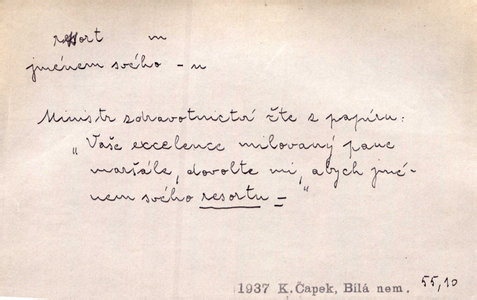 resort m
jménem svého - u
Ministr zdravotnictví čte z papíru:
„Vaše excelence milovaný pane
maršále, dovolte mi, abych jmé-
nem svého resortu -"
1937 K. Čapek, Bílá nem. 55,10